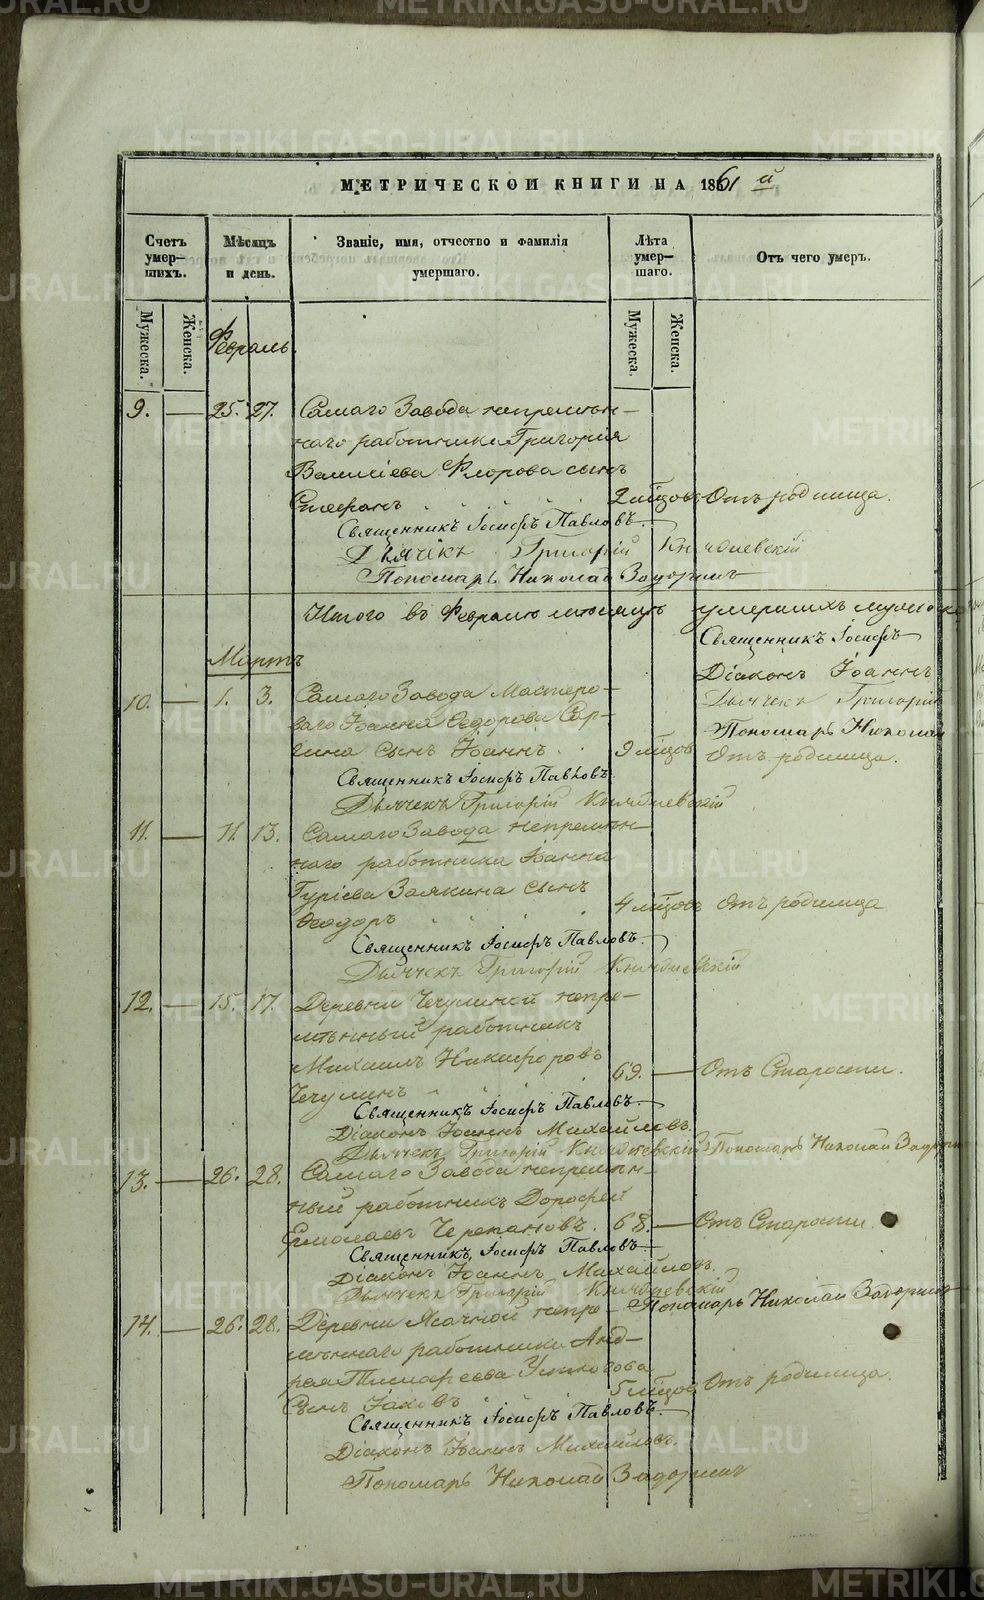 МЕТРИЧЕСКОЙ КНИГИ НА 1861 й
Счетъ умер-шихъ.
Мѣсяцъ и день.
Званіе, имя, отчество и фамилія умершаго.
Лѣта умер-шаго.
Отъ чего умеръ.
Мужеска.
Женска.
Мужеска.
Женска.
Февраль.
9. — 25. 27. Самаго Завода непремѣн-
наго работника Григорія
Василіева Флорова сынъ
Стефанъ 2 мѣсцовъ Отъ родимца.
Священникъ Іосифъ Павловъ.
Дьячекъ Григорій
Пономарь Николай Задоринъ
Итого въ Февралѣ мѣсяцѣ умершихъ мужеска
Священникъ Іосифъ
Мартъ
Діаконъ Іоаннъ
10. — 1. 3. Самаго Завода Мастеро-
Дьячекъ Григорій
ваго Іоанна Ѳедорова Сер-
Пономарь Николай
гина сынъ Іоаннъ 9 мѣсцовъ Отъ родимца.
Священникъ Іосифъ Павловъ.
Дьячекъ Григорій
11. — 11. 13. Самаго Завода непремѣн-
наго работника Іоанна
Гуріева Заякина сынъ
Ѳеодоръ 4 мѣсцовъ Отъ родимца
Священникъ Іосифъ Павловъ.
Дьячекъ Григорій
12. — 15. 17. Деревни Чечулиной непре-
мѣнный работникъ
Михаилъ Никифоровъ
Чечулинъ 69. — Отъ Старости.
Священникъ Іосифъ Павловъ.
Діаконъ Іоаннъ Михайловъ.
Дьячекъ Григорій Пономарь Николай Задоринъ
13. — 26. 28. Самаго Завода непремѣн-
ный работникъ Дорофей
Ермолаевъ Черепановъ. 68. — Отъ Старости.
Священникъ Іосифъ Павловъ
Діаконъ Іоаннъ Михайловъ.
Дьячекъ Григорій
Пономарь Николай Задоринъ
14. — 26. 28. Деревни Ясачной непре-
мѣннаго работника Анд-
рея Тимофеева
сынъ Іаковъ 5 мѣсцовъ Отъ родимца.
Священникъ Іосифъ Павловъ.
Діаконъ Іоаннъ Михайловъ.
Пономарь Николай Задоринъ
METRIKI.GASO-URAL.RU